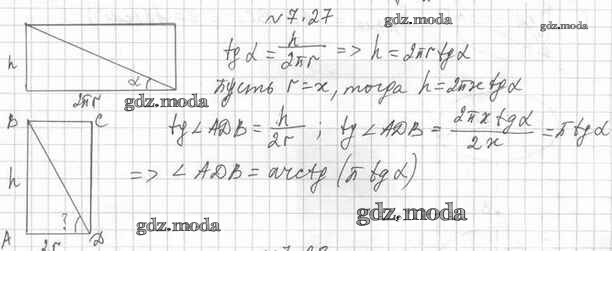 № 7.27
gdz.moda
gdz.moda
h
α
2πr
tg α = h/2πr => h = 2πr tg α
пусть r = x, тогда h = 2πx tg α
gdz.moda
B C
h
?
A D
2r
tg ∠ADB = h/2r ; tg ∠ADB = 2πx tg α/2x = π tg α
=> ∠ADB = arctg (π tg α)
gdz.moda
gdz.moda